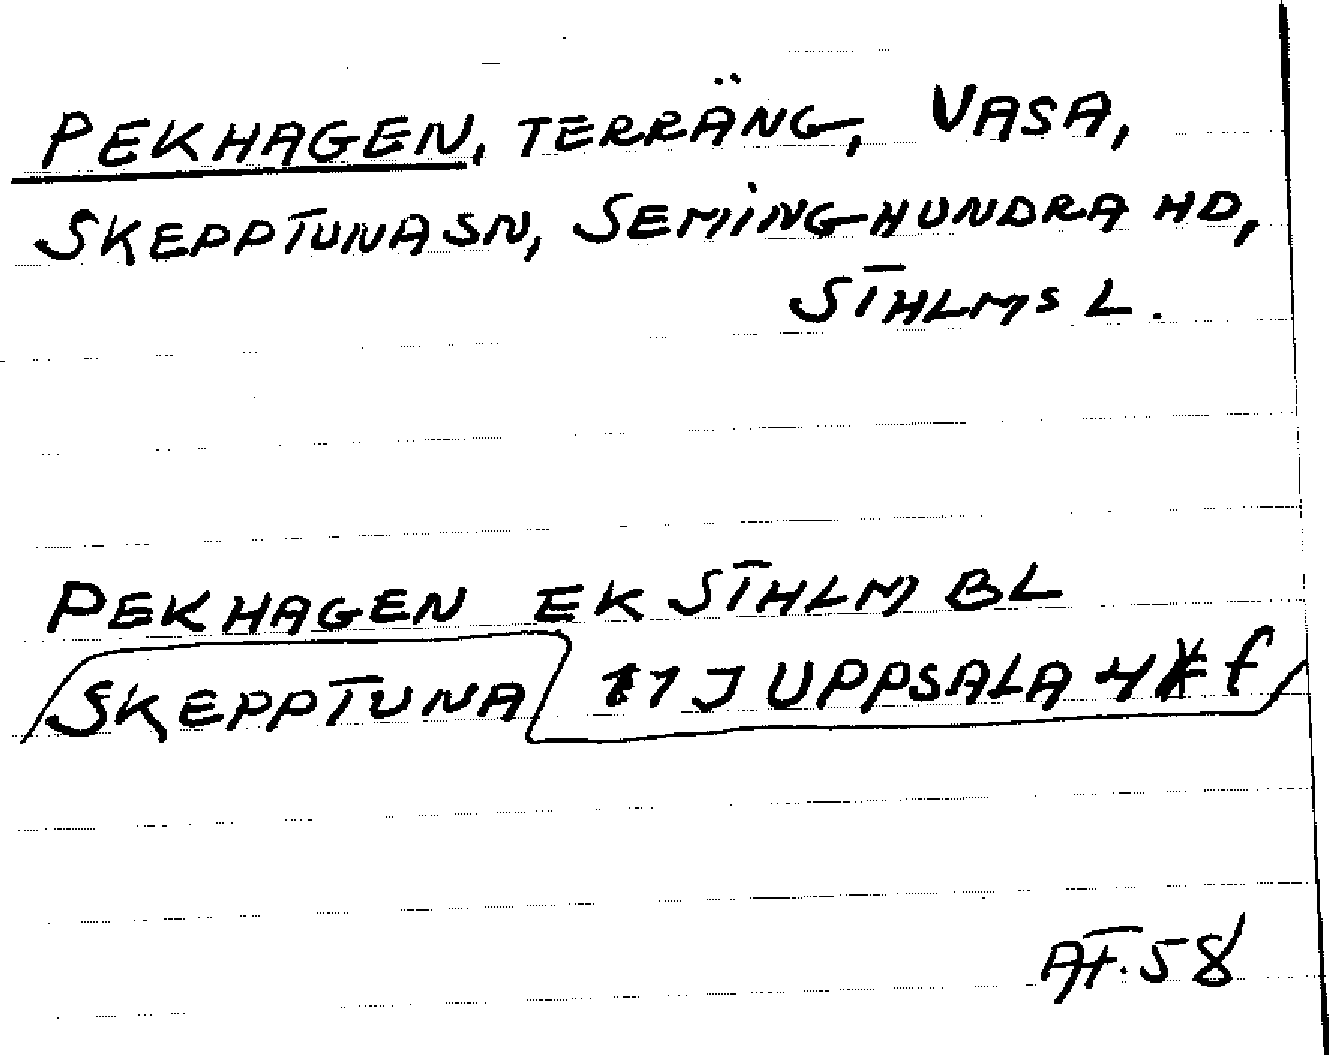 PEKHAGEN, TERRÄNG, VASA,
SKEPPTUNA SN, SEMINGHUNDRA HD,
STHLMS L.
PEKHAGEN EK STHLM BL
SKEPPTUNA 11 J UPPSALA 4 f
AF. 58